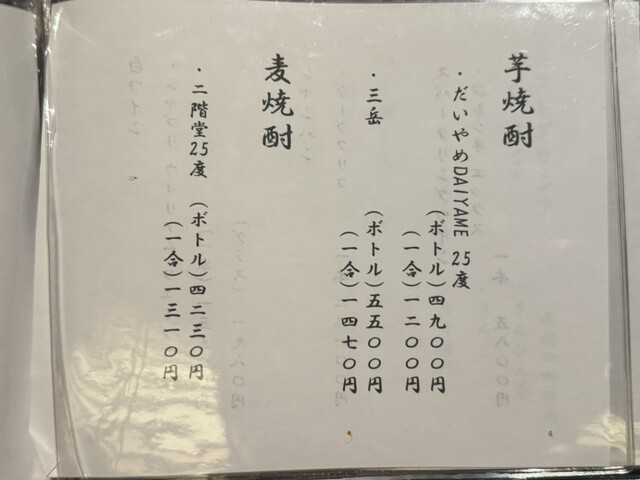 芋焼酎
・だいやめDAIYAME 25度
(ボトル)四九〇〇円
(一合)一二〇〇円
・三岳
(ボトル)五五〇〇円
(一合)一四七〇円
麦焼酎
・二階堂25度
(ボトル)四二三〇円
(一合)一三一〇円
4